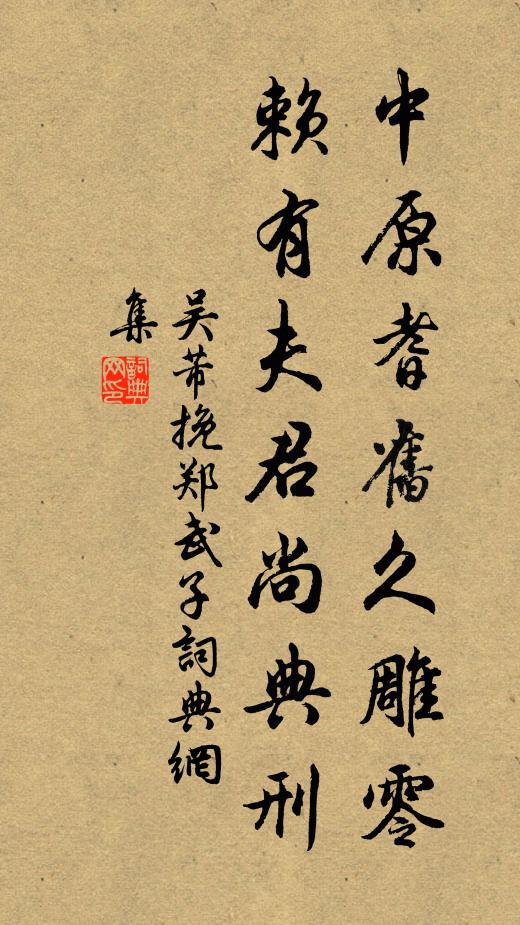 中原耆舊久雕零
賴有夫君尚典刑
吴芾挽郑武子詞典網
集
詞典網印